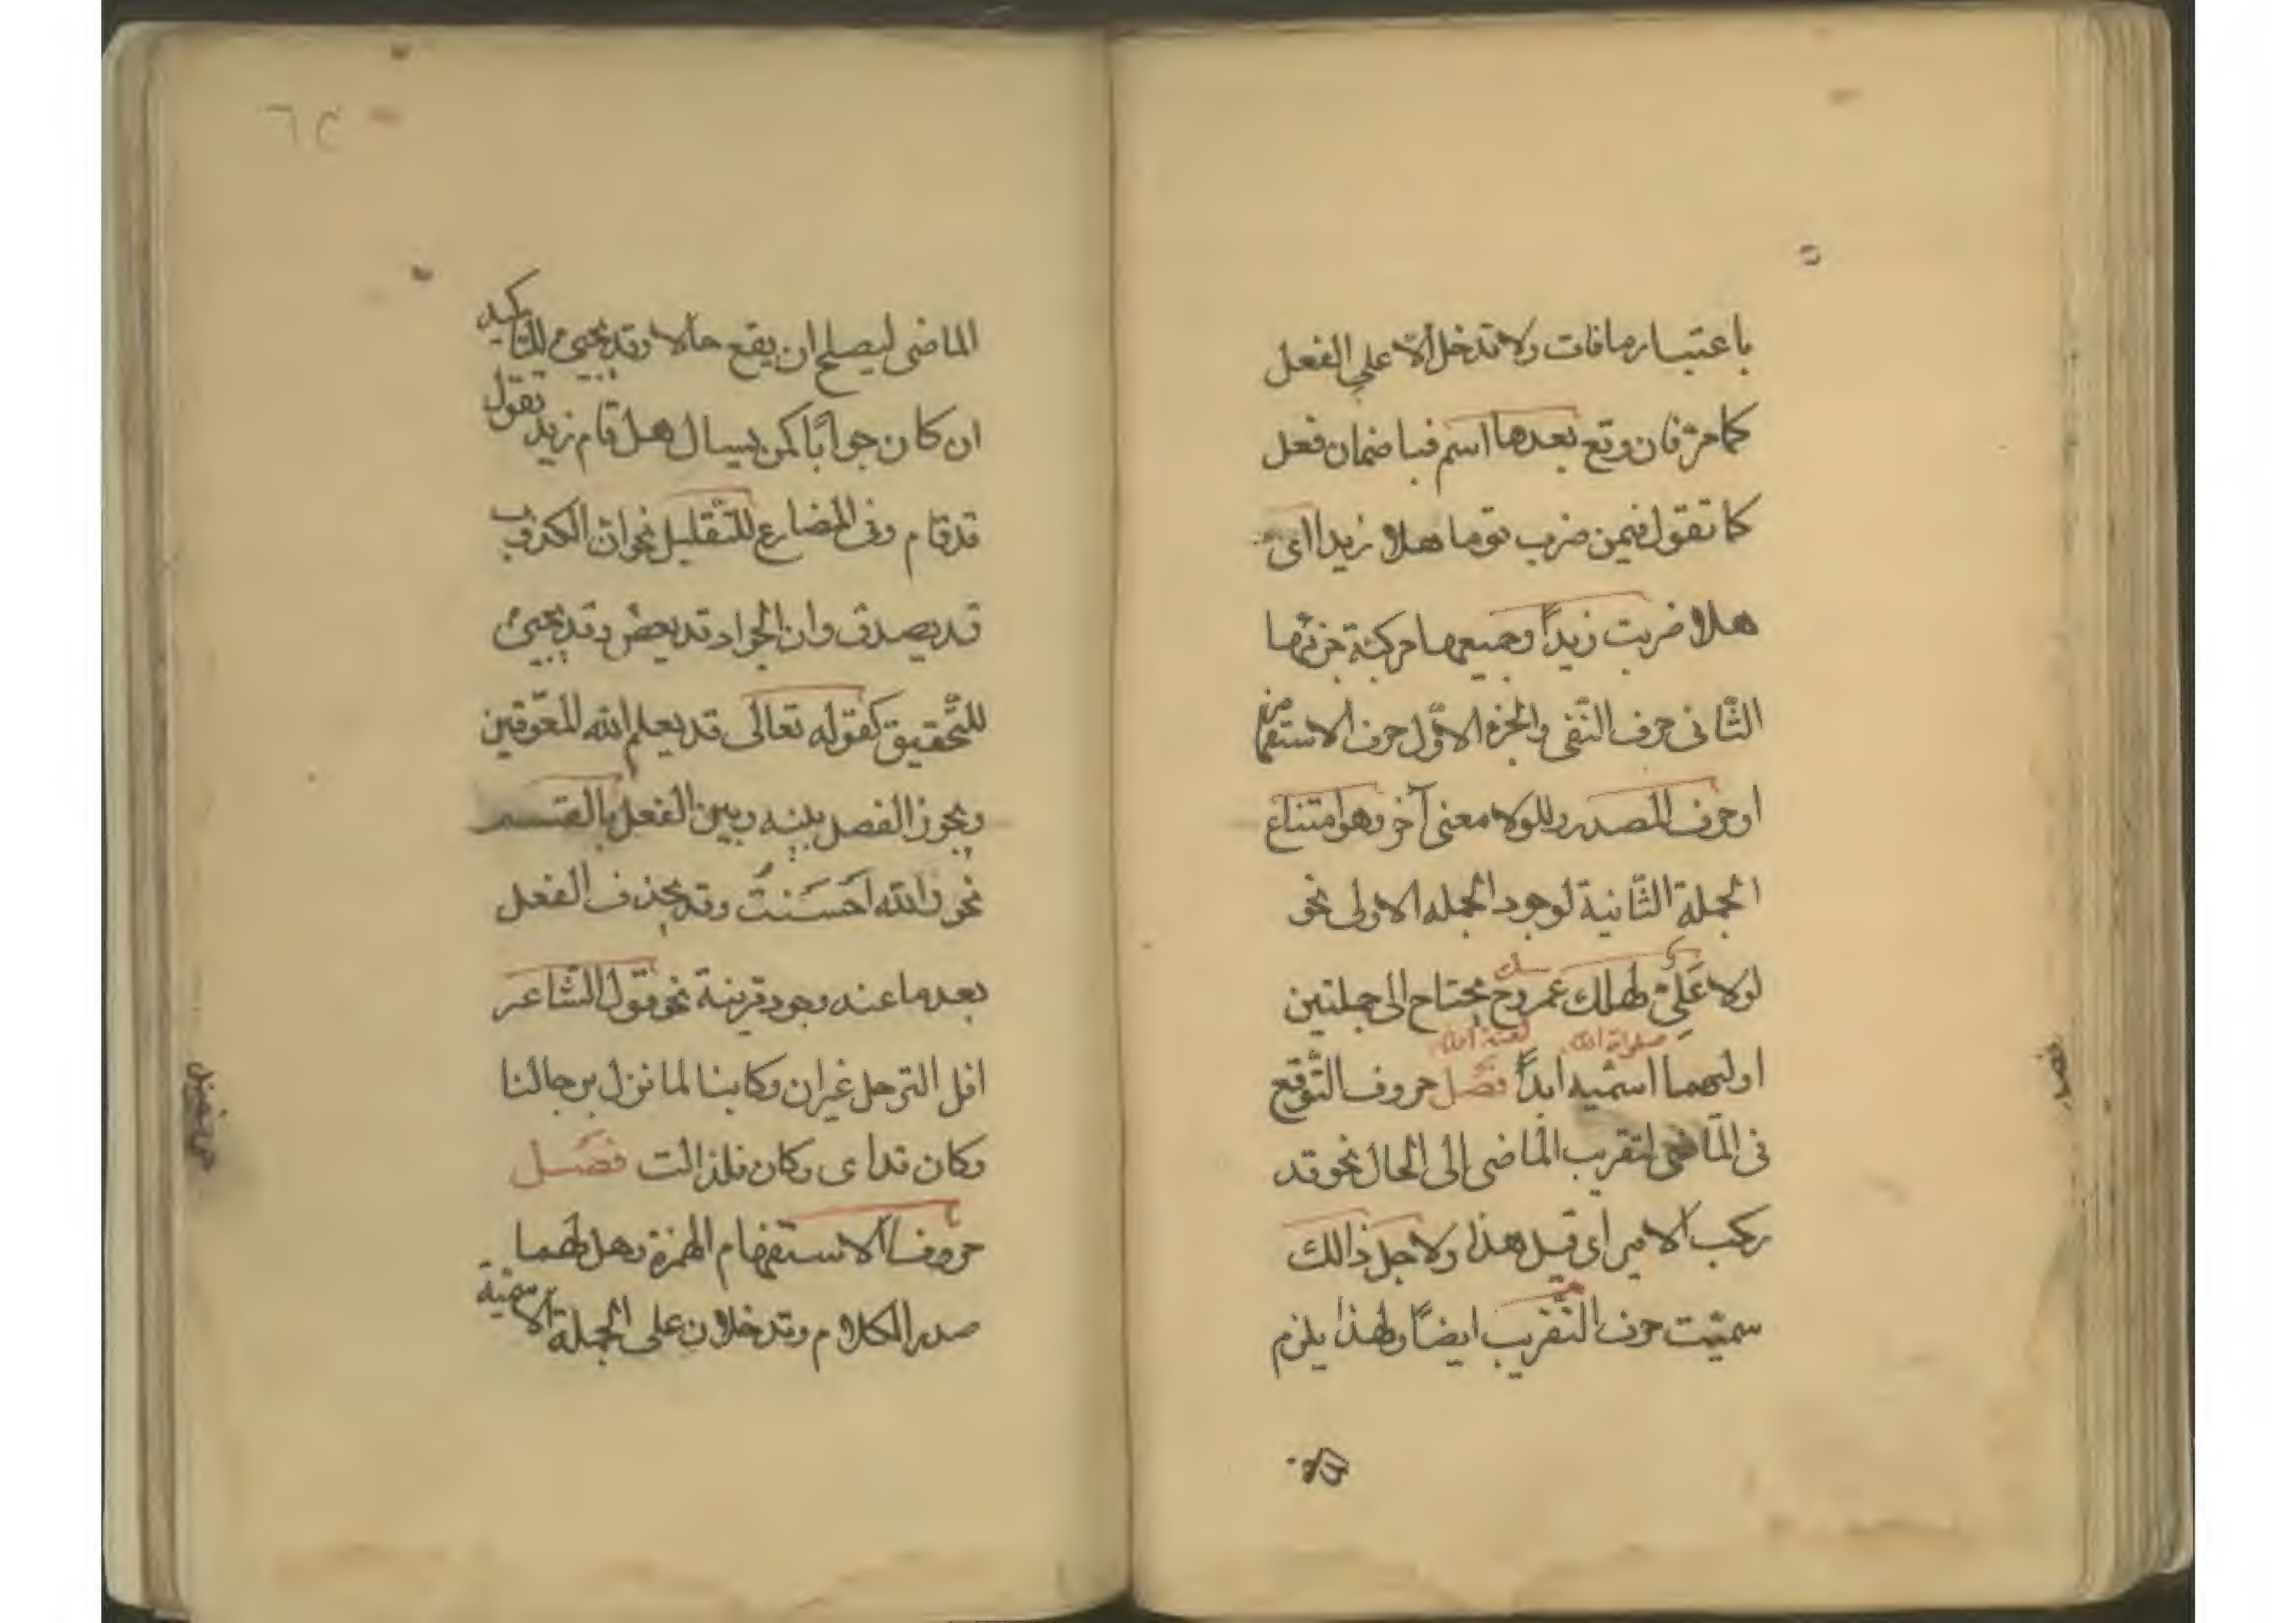 باعتبار مافات ولا تدخل الّا علي الفعل
كما مرّ فان وقع بعدها اسم فباضمان فعل
كما تقول فيمن ضرب قوما هلا زيدا اى
هلا ضربت زيداً وجميعها مركبة جزئها
الثّانى حرف النّفى والجزء الاوّل حرف الاستفها
او حرف المصدر وللولا معنى آخر وهو امتناع
الجملة الثّانية لوجود الجمله الاولى نحو
لولا عَلِىٌّ لهلك عمر وح يحتاج الى جملتين
صلوات الله لعنة الله
اوليهما اسميه ابداً فصّل حروف التّوقع
فى المّاضى لتقريب المّاضى الى الحال نحو قد
ركب الامير اى قبل هذا ولاجل ذالك
سميّت حرف التّقريب ايضًا ولهذا يلزم
الماضى ليصلح ان يقع حالا وقد يجيئ للتاكيد
ان كان جوابًا كمن يسال هل قام زيد تقول
قد قام وفى المضارع للتّقليل نحو انّ الكذوب
قد يصدق وان الجواد قد يعض وقد يجيئ
للتّحقيق كقوله تعالى قد يعلم الله المعّوقين
ويجوز الفصل بينه وبين الفعل بالقسم
نحو والله اَحْسَنتُ وقد يحذف الفعل
بعدها عند وجود قرينة نحو قول الشّاعر
افل الترحل غير ان وكابنا لما نزل برجالنا
وكان قداى وكان فلذالت فصّل
حروف الاستفهام الهمزة وهل ولهما
صدر الكلام وتدخلان على الجملة الاسميّة